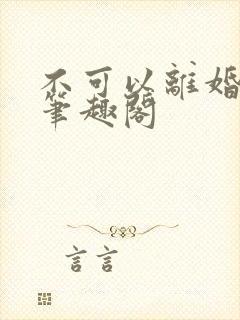 不可以離婚
筆趣閣
言言